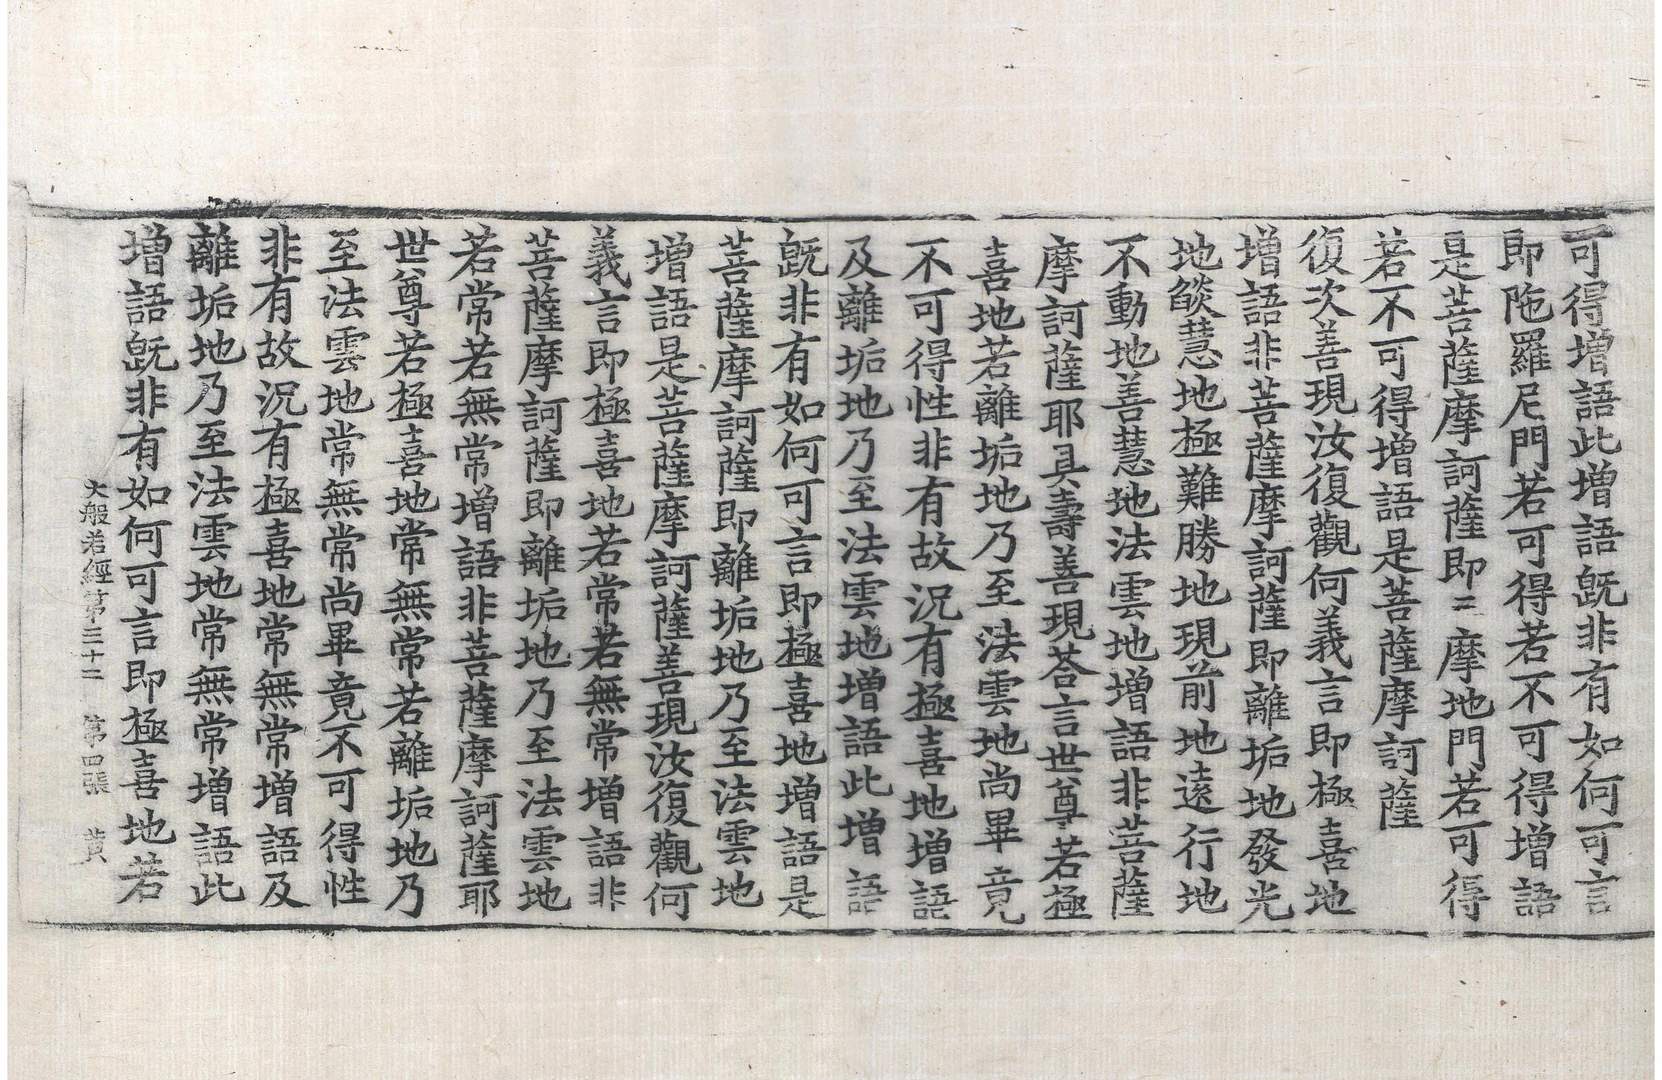 可得增語此增語旣非有如何可言
即陁羅尼門若可得若不可得增語
是菩薩摩訶薩即三摩地門若可得
若不可得增語是菩薩摩訶薩
復次善現汝復觀何義言即極喜地
增語非菩薩摩訶薩即離垢地發光
地𦦨慧地極難勝地現前地遠行地
不動地善慧地法雲地增語非菩薩
摩訶薩耶具壽善現荅言世尊若極
喜地若離垢地乃至法雲地尚畢竟
不可得性非有故況有極喜地增語
及離垢地乃至法雲地增語此增語
旣非有如何可言即極喜地增語是
菩薩摩訶薩即離垢地乃至法雲地
增語是菩薩摩訶薩善現汝復觀何
義言即極喜地若常若無常增語非
菩薩摩訶薩即離垢地乃至法雲地
若常若無常增語非菩薩摩訶薩耶
世尊若極喜地常無常若離垢地乃
至法雲地常無常尚畢竟不可得性
非有故況有極喜地常無常增語及
離垢地乃至法雲地常無常增語此
增語旣非有如何可言即極喜地若
大般若經第三十二 第四張 黃